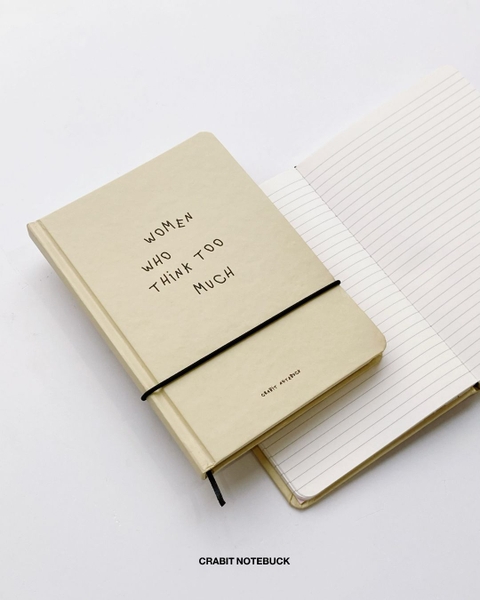 WOMEN
WHO
THiNK TOO
MUCH
CRABIT NOTEBUCK
CRABIT NOTEBUCK